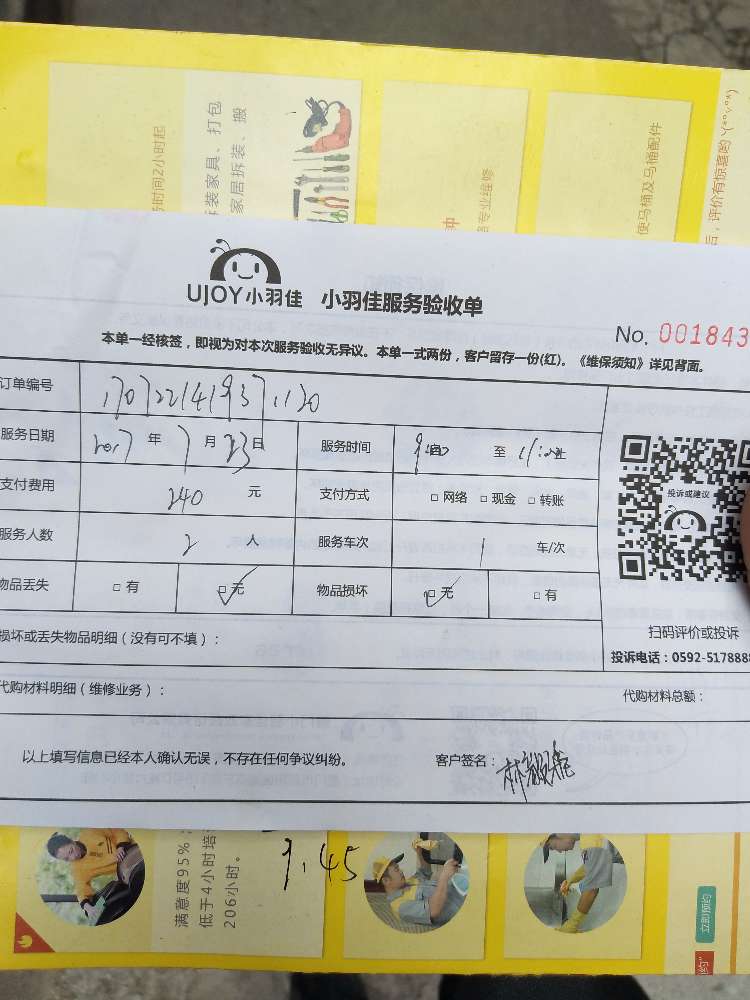 务时间2小时起
拆装家具、打包
家居拆装、搬
修专业维修
便马桶及马桶配件
后，评价有惊喜哟
UJOY小羽佳 小羽佳服务验收单
No. 001843
本单一经核签，即视为对本次服务验收无异议。本单一式两份，客户留存一份(红)。《维保须知》详见背面。
订单编号
服务日期 2017 年 7 月 23 日 服务时间 至
支付费用 240 元 支付方式 □ 网络 □ 现金 □ 转账
服务人数 2 人 服务车次 1 车/次
物品丢失 □ 有 □ 无 物品损坏 □ 无 □ 有
投诉或建议
扫码评价或投诉
投诉电话：0592-5178888
损坏或丢失物品明细（没有可不填）：
代购材料明细（维修业务）： 代购材料总额：
以上填写信息已经本人确认无误，不存在任何争议纠纷。 客户签名：
满意度95%
低于4小时培
206小时。
9.45
立即预约